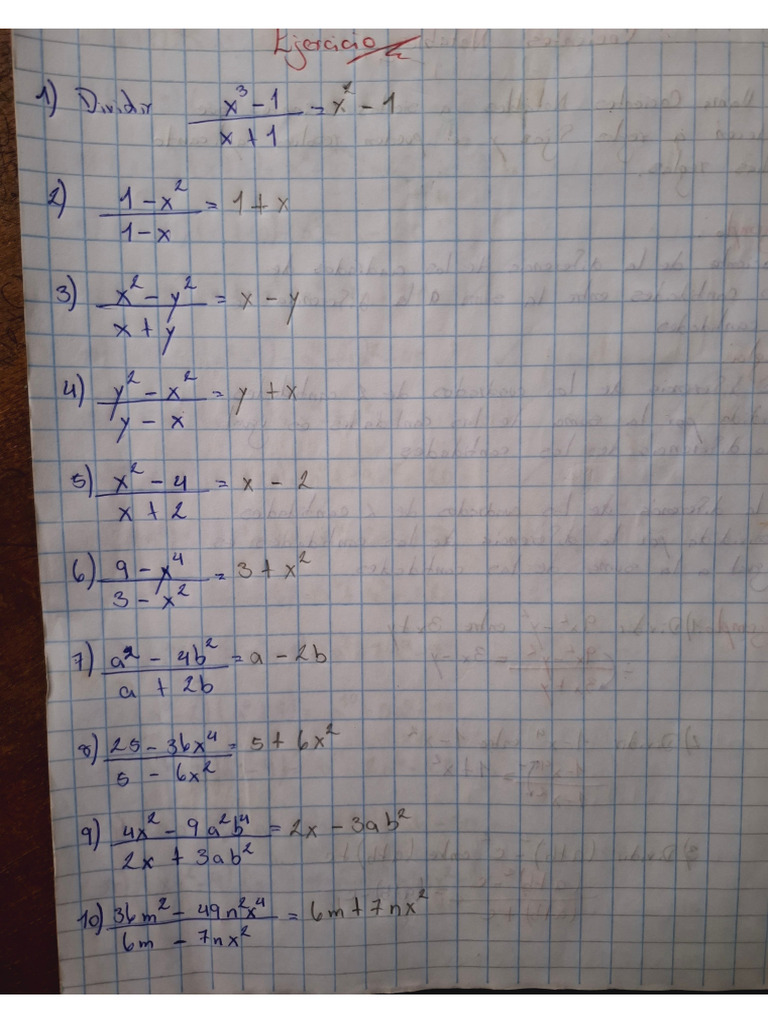 Ejercicio
1) Dividir x³ - 1 / x + 1 = x² - 1
2) 1 - x² / 1 - x = 1 + x
3) x² - y² / x + y = x - y
4) y² - x² / y - x = y + x
5) x² - 4 / x + 2 = x - 2
6) 9 - x⁴ / 3 - x² = 3 + x²
7) a² - 4b² / a + 2b = a - 2b
8) 25 - 36x⁴ / 5 - 6x² = 5 + 6x²
9) 4x² - 9a²b⁴ / 2x + 3ab² = 2x - 3ab²
10) 36m² - 49n²x⁴ / 6m - 7nx² = 6m + 7nx²